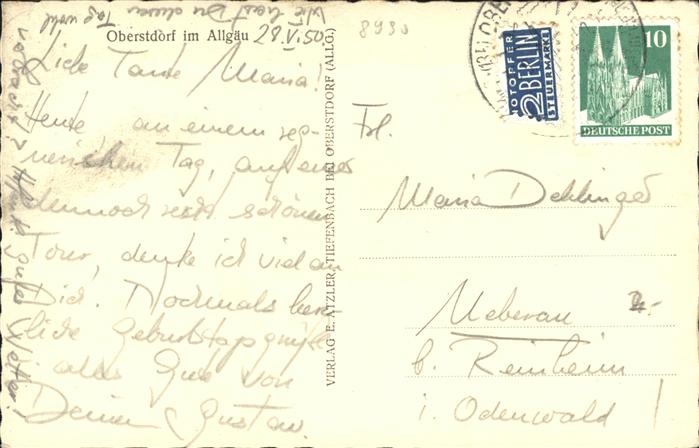 Oberstdorf im Allgäu 28.V.50
Liebe Tante Maria!
Heute, an einem reg-
nerischen Tag, auf einer
dennoch recht schönen
Tour, denke ich viel an
Dich. Nochmals herz-
liche Geburtstagsgrüße
alles Gute von
Deinem Gustav.
Wie hast Du diesen Tag wohl
verbracht? gutes Wetter.
VERLAG E. ATZLER, TIEFENBACH BEI OBERSTDORF (ALLG.)
8980
NOTOPFER
2 BERLIN
STEUERMARKE
10
DEUTSCHE POST
Frl.
Maria Dehlinger
Ueberau
b. Reinheim
i. Odenwald